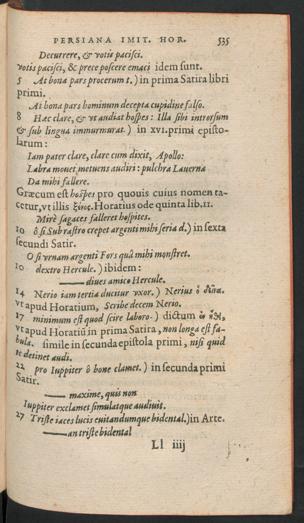 PERSIANA IMIT. HOR. 535
Decurrere, & votis pacisci.
votis pacisci, & prece poscere emaci idem sunt.
5 At bona pars procerum t.) in prima Satira libri
primi.
At bona pars hominum decepta cupidine falso.
8 Hæc clare, & vt audiat hospes: Illa sibi introrsum
& sub lingua immurmurat) in XVI. primi episto-
larum:
Iam pater clare, clare cum dixit, Apollo:
Labra mouet metuens audiri: pulchra Lauerna
Da mihi fallere.
Græcum est hospes pro quouis cuius nomen ta-
cetur, vt illis ξένος. Horatius ode quinta lib. II.
Mirè sagaces falleret hospites.
10 ô si Sub rastro crepet argenti mihi seria d.) in sexta
secundi Satir.
O si vrnam argenti Fors quâ mihi monstret.
10 dextro Hercule.) ibidem:
—— diues amico Hercule.
14 Nerio iam tertia ducitur vxor.) Nerius
vt apud Horatium, Scribe decem Nerio.
17 minimum est quod scire laboro.) dictum
vt apud Horatiū in prima Satira, non longa est fa-
bula. simile in secunda epistola primi, nisi quid
te detinet audi.
22 pro Iuppiter ô bone clamet.) in secunda primi
Satir.
—— maxime, quis non
Iuppiter exclamet simulatque audiuit.
27 Triste iaces lucis euitandumque bidental.) in Arte.
—— an triste bidental
Ll iiij